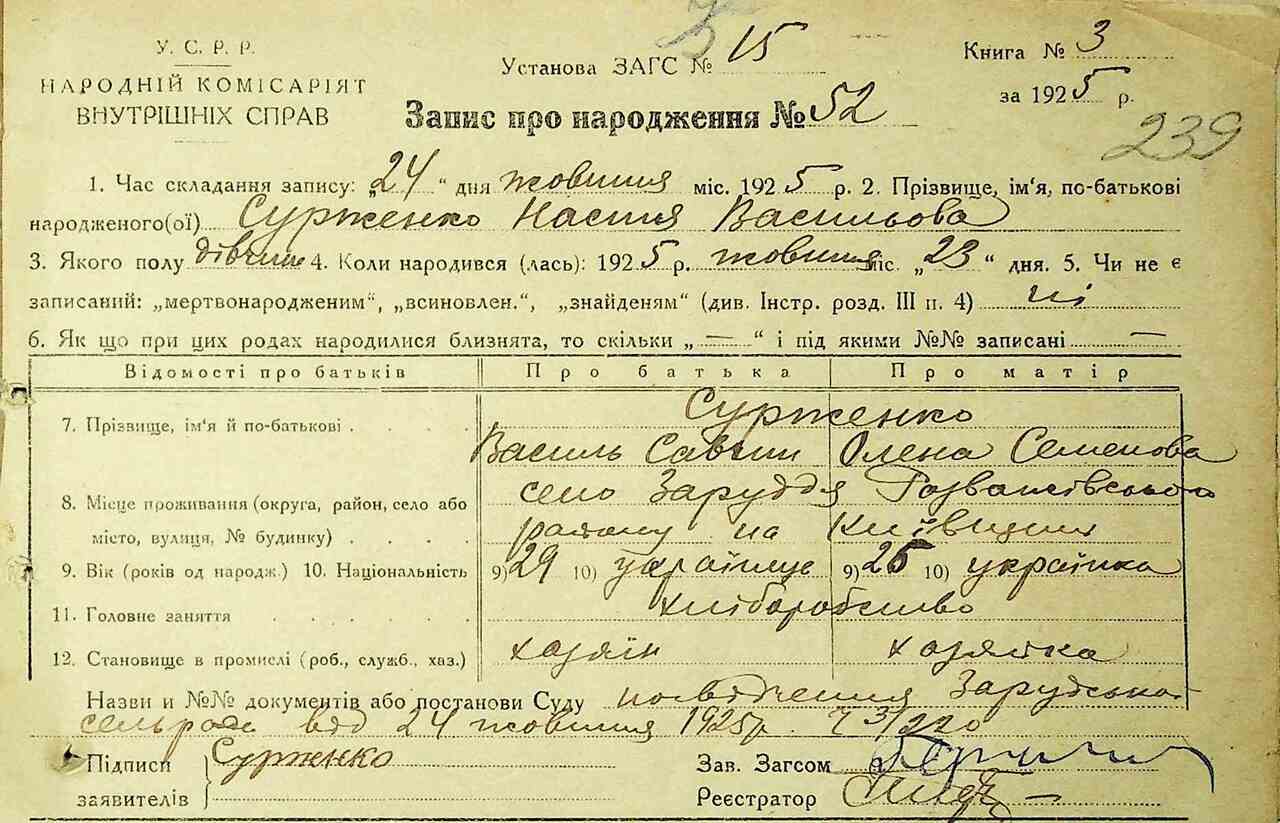 У. С. Р. Р.
НАРОДНІЙ КОМІСАРІЯТ
ВНУТРІШНІХ СПРАВ
Установа ЗАГС № 15
Книга № 3
за 1925 р.
Запис про народження № 52
239
1. Час складання запису: „24“ дня жовтня міс. 1925 р. 2. Прізвище, ім'я, по-батькові
народженого(ої) Сурженко Настя Васильова
3. Якого полу дівчина 4. Коли народився (лась): 1925 р. жовтня міс. „23“ дня. 5. Чи не є
записаний: „мертвонародженим“, „всиновлен.“, „знайденям“ (див. Інстр. розд. III п. 4) ні
6. Як що при цих родах народилися близнята, то скільки „—“ і під якими №№ записані —
Відомості про батьків Про батька Про матір
7. Прізвище, ім'я й по-батькові Сурженко
Василь Савчин Олена Семенова
8. Місце проживання (округа, район, село або село Заруддя Розважівського
місто, вулиця, № будинку) району на Київщині
9. Вік (років од народж.) 10. Національність 9) 29 10) українець 9) 25 10) українка
11. Головне заняття хліборобство
12. Становище в промислі (роб., служб., хаз.) хазяїн хазяйка
Назви и №№ документів або постанови Суду посвідчення Зарудсько-
сельради від 24 жовтня 1925 р. Ч 3/220
Підписи Сурженко
заявителів
Зав. Загсом
Реєстратор